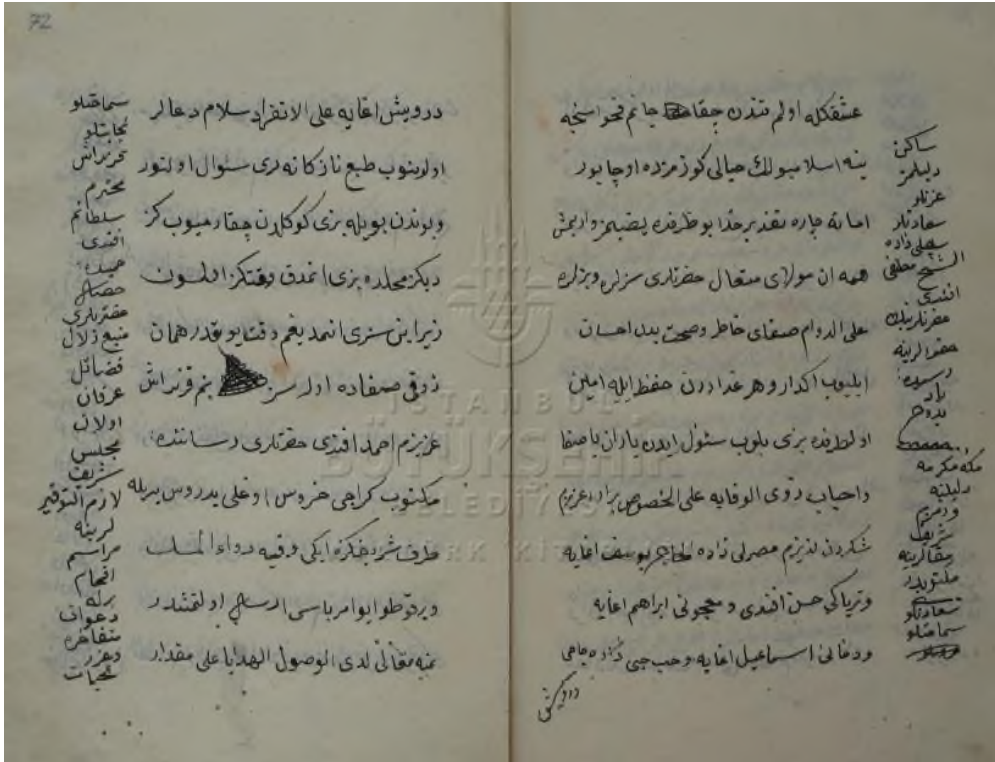 عشقكله اولم تندن چقا جانم فحواسنجه
ينه اسلامبولك خيالى كوزمزده اوچايور
اما نه چاره تقدير خدا بو طرفده نصيبمز وار ايمش
همه ان مولاى متعال حضرتلرى سزلره و بزلره
على الدوام صفاى خاطر و صحت بدن احسان
ايليوب اكدار و هر غدا دردن حفظ ايليه امين
اول طرفده بزى بلوب سئول ايدن ياران با صفا
و احباب ذوى الوفايه على الخصوص برادر عزيزم
شكردن لذيزم مصرلى زاده الحاج يوسف اغايه
و ترياكى حسن افندى و معجونى ابراهم اغايه
و دخانى اسماعيل اغايه و حب چى زاده حاجى
درويش
ساكن
دليلمز
عزتلو
سعادتلو
الشيخ مصطفى
افندى
حضرتلرينك
حضورلرينه
رسيده
باد
بدوح
مكه مكرمه
دليلينه
و زمزم
شريف
سقالرينه
مكتوبدر
سعادتلو
سماحتلو
72
درويش اغايه على الانفراد سلام دعالر
اولوينوب طبع نازكانه لرى سئوال اولنور
و بوندن بويله بزى كوكلدن چقارميوب كز
ديكز محلده بزى اتمدق وقتكز اولمسون
زيرا بن سزى اتمديغم وقت يوقدر همان
ذوقى صفاده اوله سز بنم قرنداش
عزيزم احمد افندى حضرتلرى رساننده
مكتوب كراجى خروس اوغلى بدروس يديله
طرف شريفكزه ايكى وقيه دواء المسك
و بر قوطو ايو امرباسى ارسال اولنمشدر
نمقه مقانى لدى الوصول الهدايا على مقدار
سماحتلو
نجابتلو
قرنداش
محترم
سلطانم
افندى
حميده
خصال
حضرتلرى
منبع زلال
فضائل
عرفان
اولان
مجلس
شريف
لازم التوقير
لرينه
مراسم
افخام
برله
دعوات
متفاخره
و غرر
تحيات